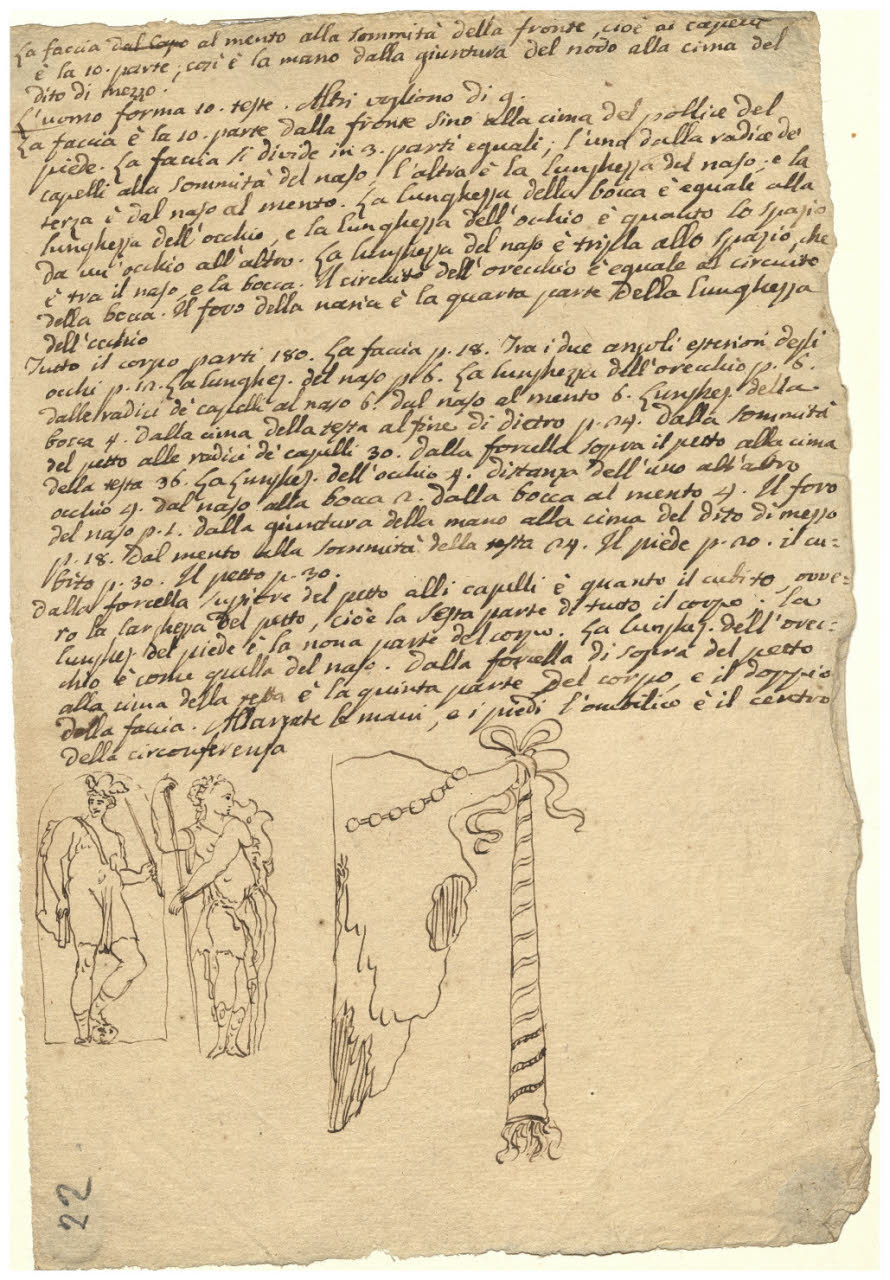 La faccia dal Capo al mento alla sommità della fronte, cioè ai capelli
è la 10. parte; così è la mano dalla giuntura del nodo alla cima del
dito di mezzo.
L'uomo forma 10. teste. Altri vogliono di 9.
La faccia è la 10. parte dalla fronte sino alla cima del pollice del
piede. La faccia si divide in 3. parti equali; l'una dalla radice de'
capelli alla sommità del naso, l'altra è la lunghezza del naso; e la
terza è dal naso al mento. La lunghezza della bocca è equale alla
lunghezza dell'occhio, e la lunghezza dell'occhio è quanto lo spazio
da un'occhio all'altro. La lunghezza del naso è tripla allo spazio, che
è tra il naso, e la bocca. Il circuito dell'orecchio è equale al circuito
della bocca. Il foro della narica è la quarta parte della lunghezza
dell'occhio
Tutto il corpo parti 180. La faccia p. 18. Tra i due angoli esteriori degli
occhi p. 12. La lunghez. del naso p. 6. La lunghezza dell'orecchio p. 6.
dalle radici de' capelli al naso 6. dal naso al mento 6. Lunghez. della
bocca 4. Dalla cima della testa al fine di dietro p. 24. Dalla sommità
del petto alle radici de' capelli 30. dalla forcella sopra il petto alla cima
della testa 36. La Lunghez. dell'occhio 4. distanza dell'uno all'altro
occhio 4. dal naso alla bocca 2. dalla bocca al mento 4. Il foro
del naso p. 1. dalla giuntura della mano alla cima del dito di mezzo
p. 18. Dal mento alla sommità della testa 24. Il piede p. 20. il cu=
bito p. 30. Il petto p. 30.
Dalla forcella supiore del petto alli capelli è quanto il cubito, ovve=
ro la larghezza del petto, cioè la sesta parte di tutto il corpo. La
lunghez. del piede è la nona parte del corpo. La lunghez. dell'orec=
chio è come quella del naso. Dalla forcella di sopra del petto
alla cima della testa è la quinta parte del corpo, e il doppio
della faccia. Allargate le mani, e i piedi l'ombilico è il centro
della circonferenza
22